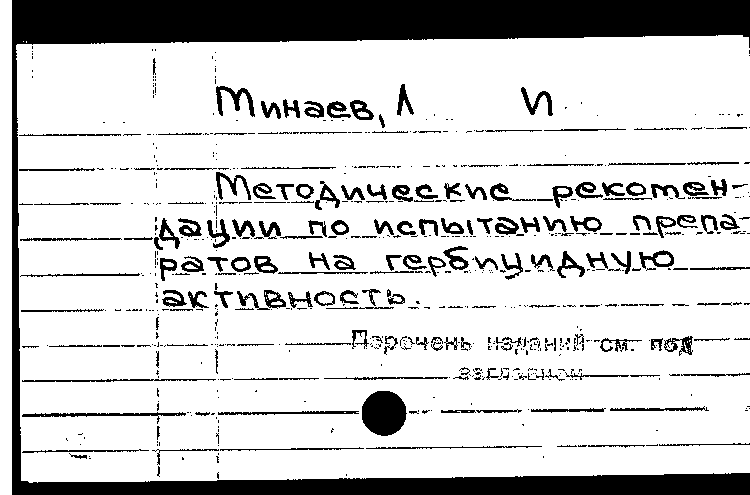 Минаев, Л И
Методические рекомен-
дации по испытанию препа-
ратов на гербицидную
активность.
Перечень изданий см. под
заглавием